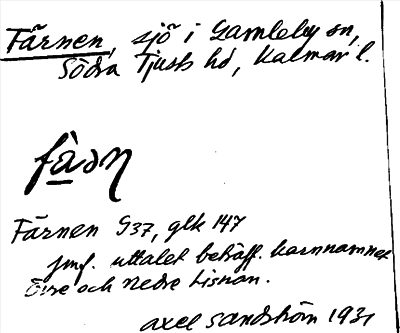 Färnen, sjö i Gamleby sn,
Södra Tjusts hd, Kalmar l.
Färnen 937, glk 147
jmf. uttalet beträff. namnet
Övre och Nedre
Axel Sandström 1931